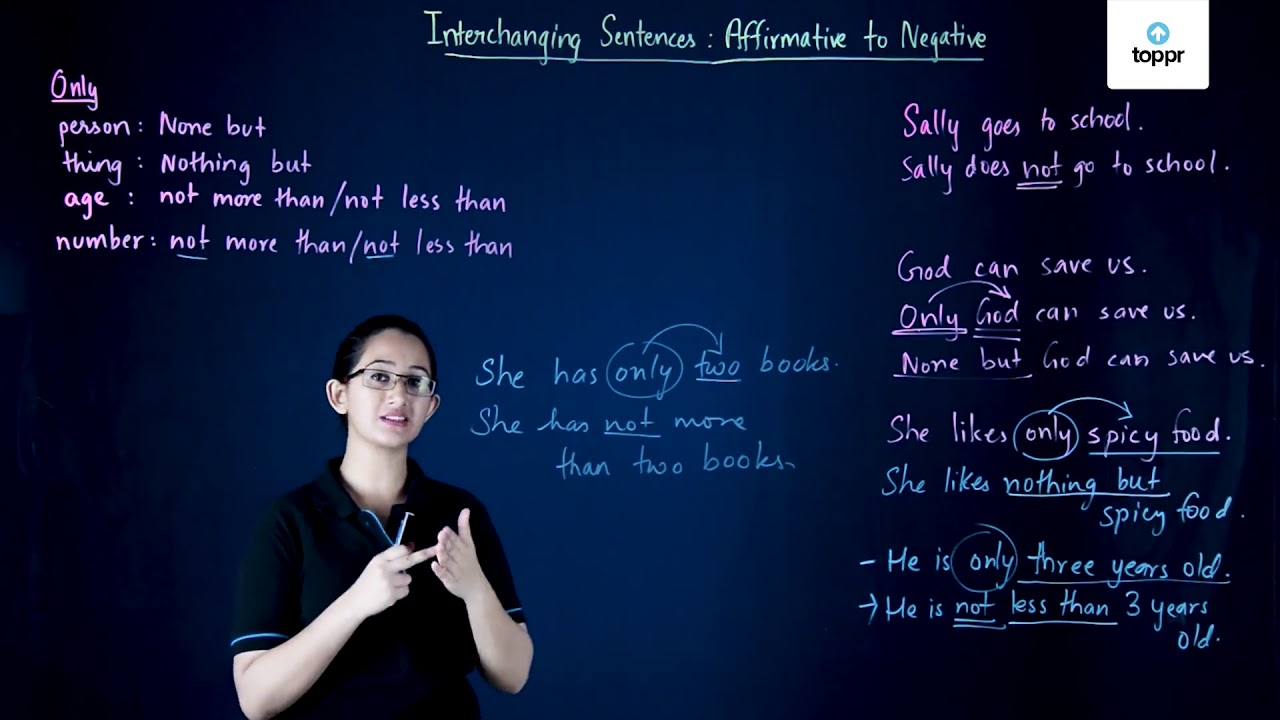 Interchanging Sentences : Affirmative to Negative
toppr
Only
person : None but
thing : Nothing but
age : not more than/not less than
number : not more than/not less than
She has only two books.
She has not more
than two books.
Sally goes to school.
Sally does not go to school.
God can save us.
Only God can save us.
None but God can save us.
She likes only spicy food.
She likes nothing but
spicy food.
- He is only three years old.
→ He is not less than 3 years
old.